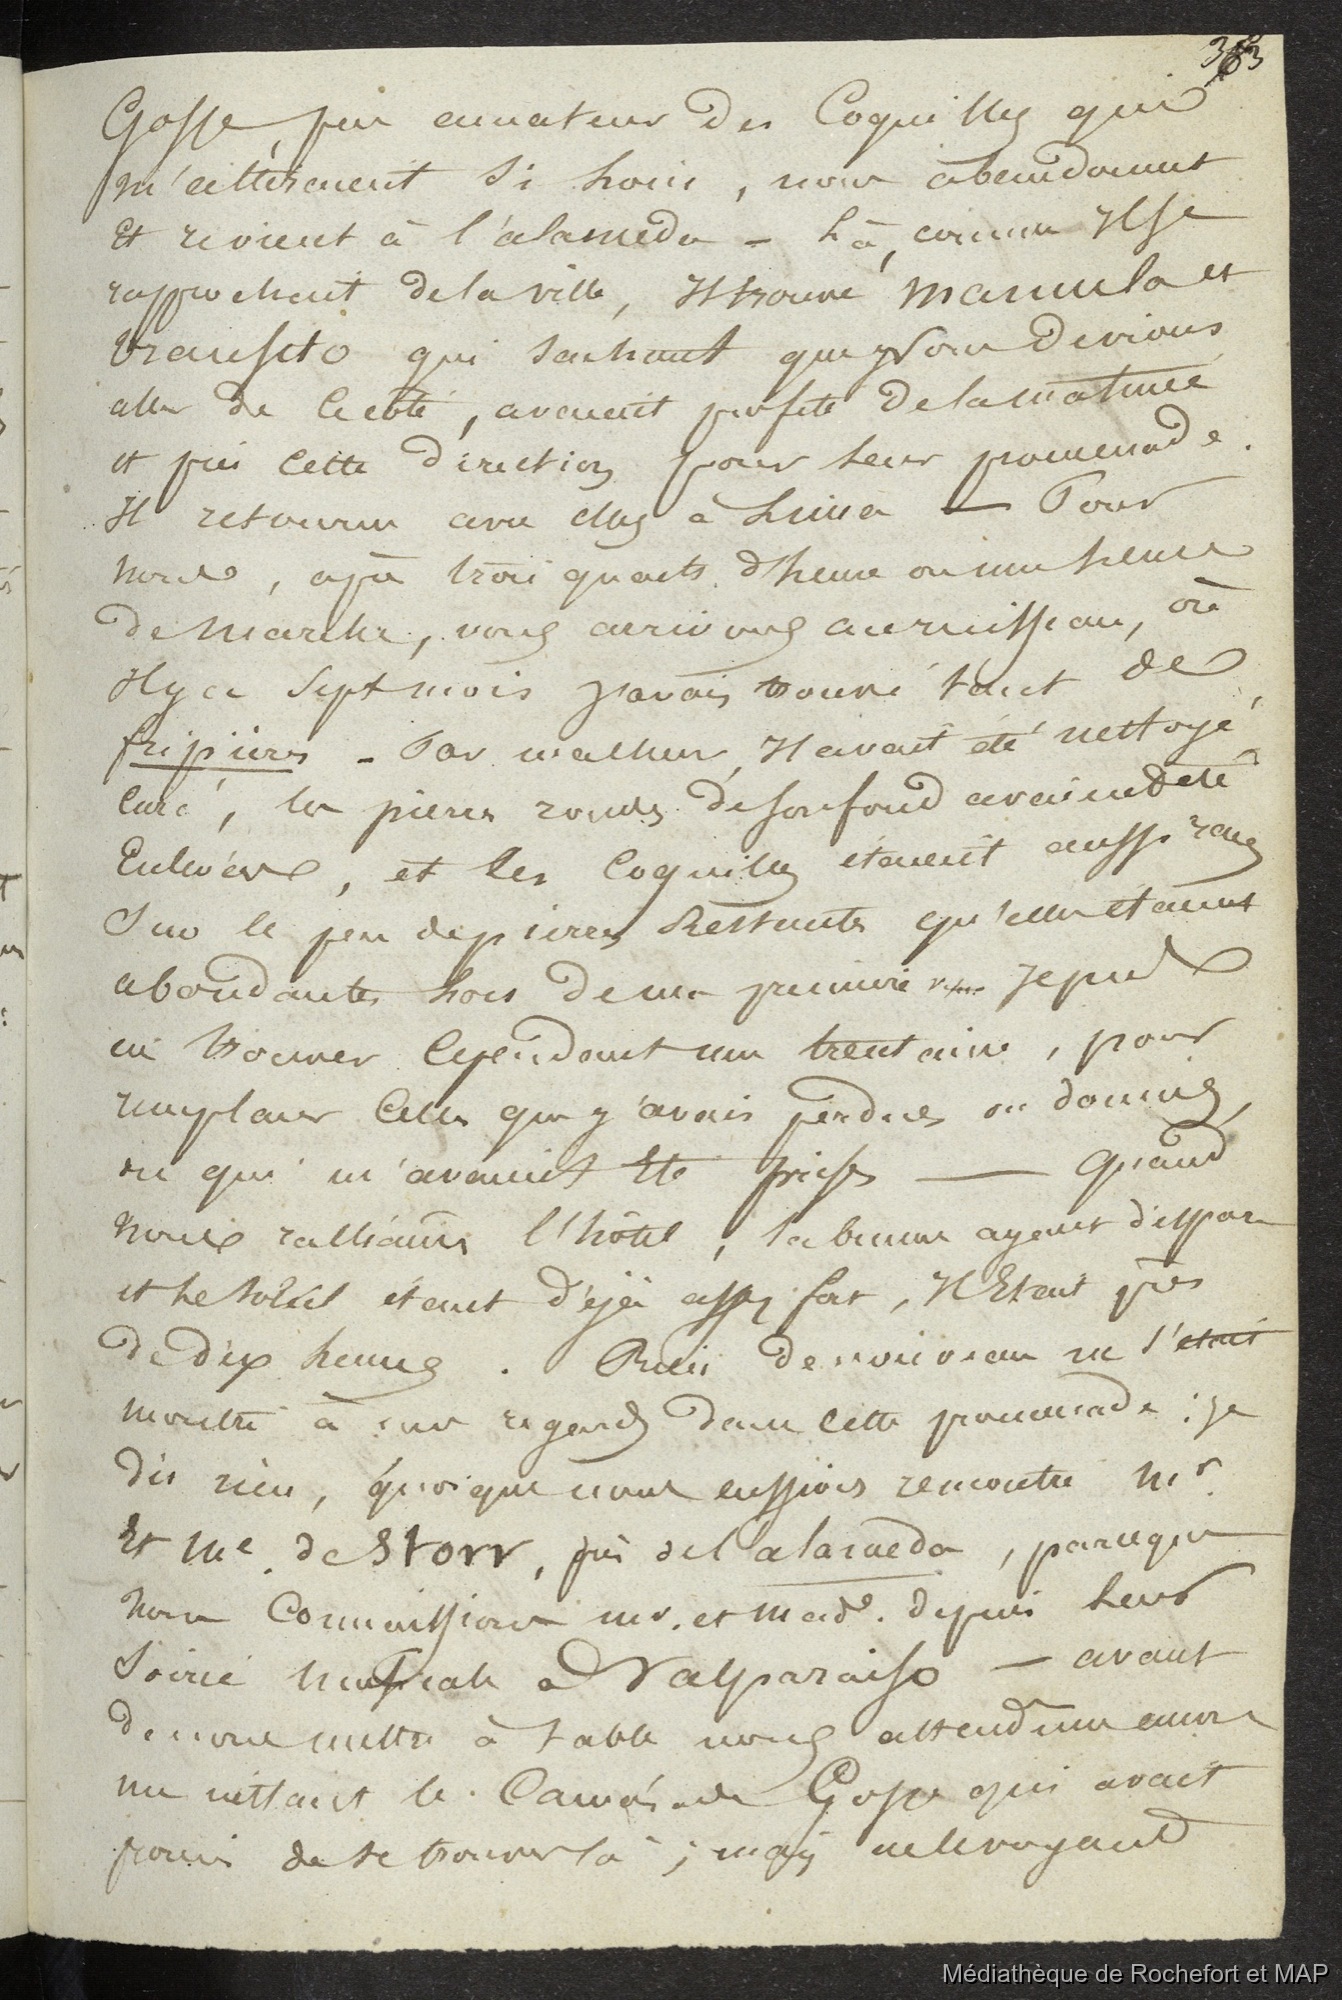 363
Gosse, peu amateur des Coquilles qui
m'attiraient si loin, nous abandonne
et revient à l'alameda - Là, comme Il se
rapprochait de la ville, Il trouve Manuela et
transito qui sachant que Nous devions
aller de Ce côté, avaient profité de la matinée
et pris cette direction pour leur promenade.
Il retourne avec elles à Lima — Pour
nous, après trois quarts d'heure ou une heure
de marche, nous arrivons au ruisseau, où
Il y a Sept mois j'avais trouvé tant de
fripières - Par malheur, Il avait été nettoyé,
Curé, les pierres rondes de son fond avaient été
Enlevées, et les Coquilles étaient aussi rares
Sur le peu de pierres Restantes qu'elles étaient
abondantes lors de ma première Je pus
en trouver Cependant une trentaine, pour
remplacer Celles que j'avais perdues ou données,
ou qui m'avaient Eté prises — Quand
nous ralliâmes l'hôtel, la brume ayant disparu
et le Soleil étant déjà assez fort, Il Etait près
de dix heures. Rien de nouveau ne s'était
montré à nos regards dans cette promenade : je
dis rien, quoique nous eussions rencontré Mr.
Et Me. de Storr, près de l'alameda, parceque
nous Connaissions mr. et Made. depuis leur
Soirée musicale à Valparaiso — avant
de nous mettre à table nous attendîmes encore
un instant le Camarade Gosse qui avait
promis de se trouver là ; mais ne le voyant
Médiathèque de Rochefort et MAP